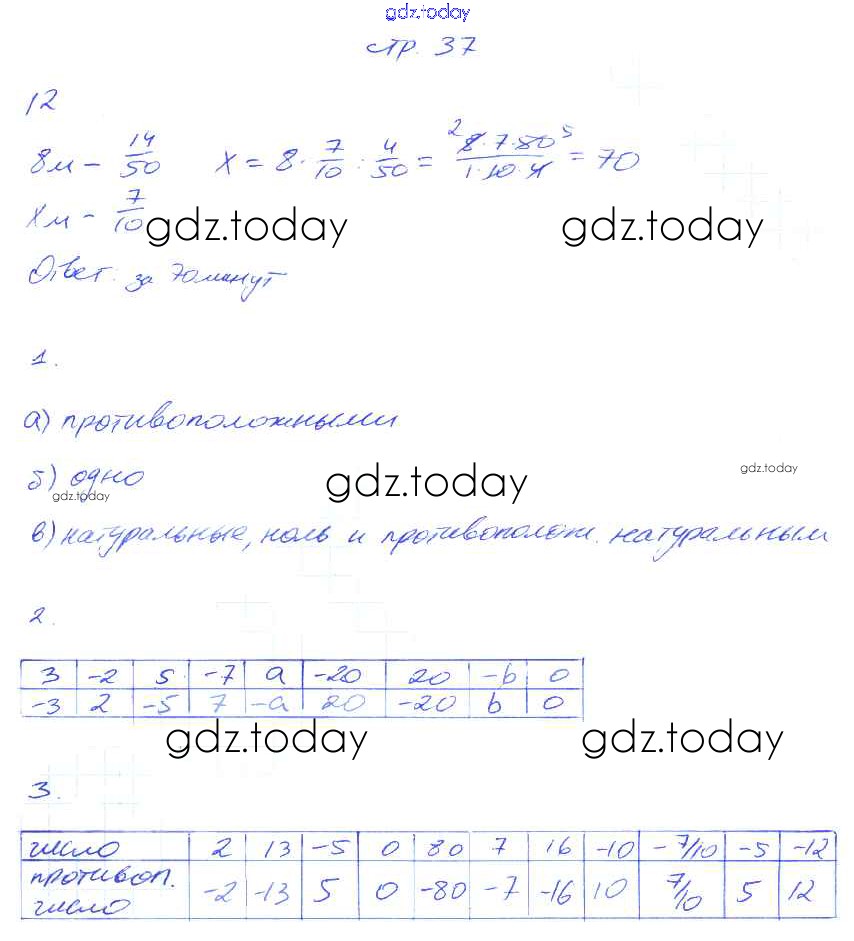 gdz.today
стр. 37
12
8м – 14/50 x = 8 · 7/10 : 4/50 = 8 · 7 · 80 / 1 · 10 · 4 = 70
2 5
xм – 7/10
gdz.today gdz.today
Ответ: за 70 минут
1.
а) противоположными
б) одно
gdz.today gdz.today gdz.today
в) натуральные, ноль и противополож. натуральным
2.
3 -2 5 -7 a -20 20 -b 0
-3 2 -5 7 -a 20 -20 b 0
gdz.today gdz.today
3.
число 2 13 -5 0 80 7 16 -10 -7/10 -5 -12
противоп. число -2 -13 5 0 -80 -7 -16 10 7/10 5 12